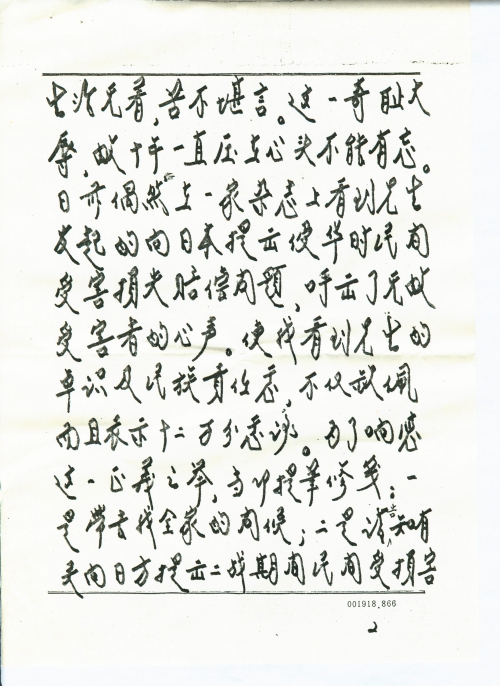 生活无着，苦不堪言。这一奇耻大
辱，数十年一直压在心头不能有忘。
日前偶然在一家杂志上看到先生
发起的向日本提出侵华时民间
受害损失赔偿问题，呼出了无数
受害者的心声。使我看到先生的
卓识及民族责任感，不仅敬佩
而且表示十二万分感谢。为了响应
这一正义之举，立即提笔修笺：一
是带去我全家的问候；二是请告知有
关向日方提出二战期间民间受损害
001918,866
2